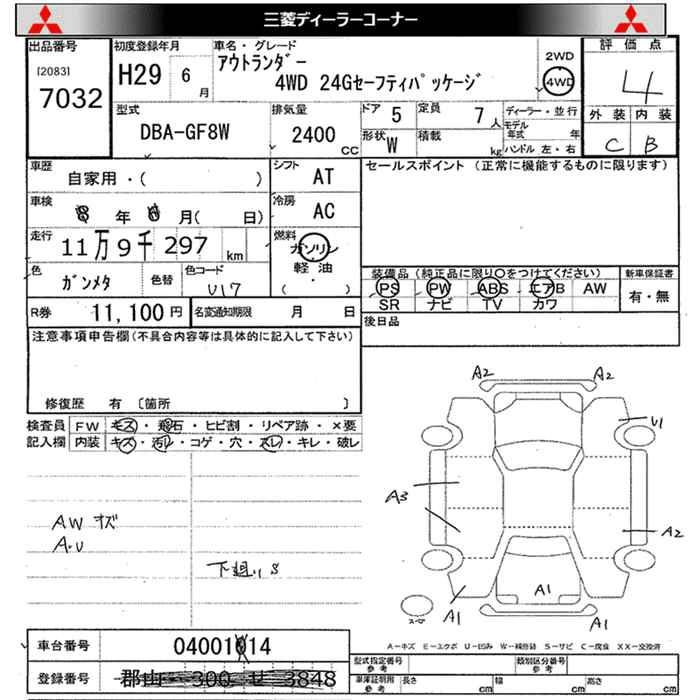 三菱ディーラーコーナー
出品番号
[2083]
7032
初度登録年月
H29 6月
車名・グレード
アウトランダー
4WD 24Gセーフティパッケージ
2WD
4WD
評価点
4
外装 内装
C B
型式
DBA-GF8W
排気量
2400 CC
ドア 5
定員 7人
形状 W
積載 kg
ディーラー・並行
モデル年式 年
ハンドル 左・右
車歴
自家用・( )
シフト AT
セールスポイント (正常に機能するものに限ります)
車検
年 月( 日)
冷房 AC
走行
11万9千297 km
燃料
ガソリン
軽油
( ・ )
色 ガンメタ
色替
色コード U17
装備品(純正品に限り○をつけてください)
新車保証書
PS PW ABS エアB AW
SR ナビ TV カワ
有・無
R券 11,100円
名変通知期限 月 日
後日品
注意事項申告欄(不具合内容等は具体的に記入して下さい)
修復歴 有 〔箇所 〕
検査員記入欄
FW キズ・飛石・ヒビ割・リペア跡・×要
内装 キズ・汚れ・コゲ・穴・スレ・キレ・破レ
AW キズ
A.U
下廻り S
A2 A2
U1
A3
A2
A1
A1
A1
A1
スペア
A-キズ E-エクボ U-凹み W-補修跡 S-サビ C-腐食 XX-交換済
車台番号 0400114
登録番号 郡山 300 せ 3848
型式指定番号 参考
類別区分番号 参考
車庫証明用 参考
長さ cm
幅 cm
高さ cm